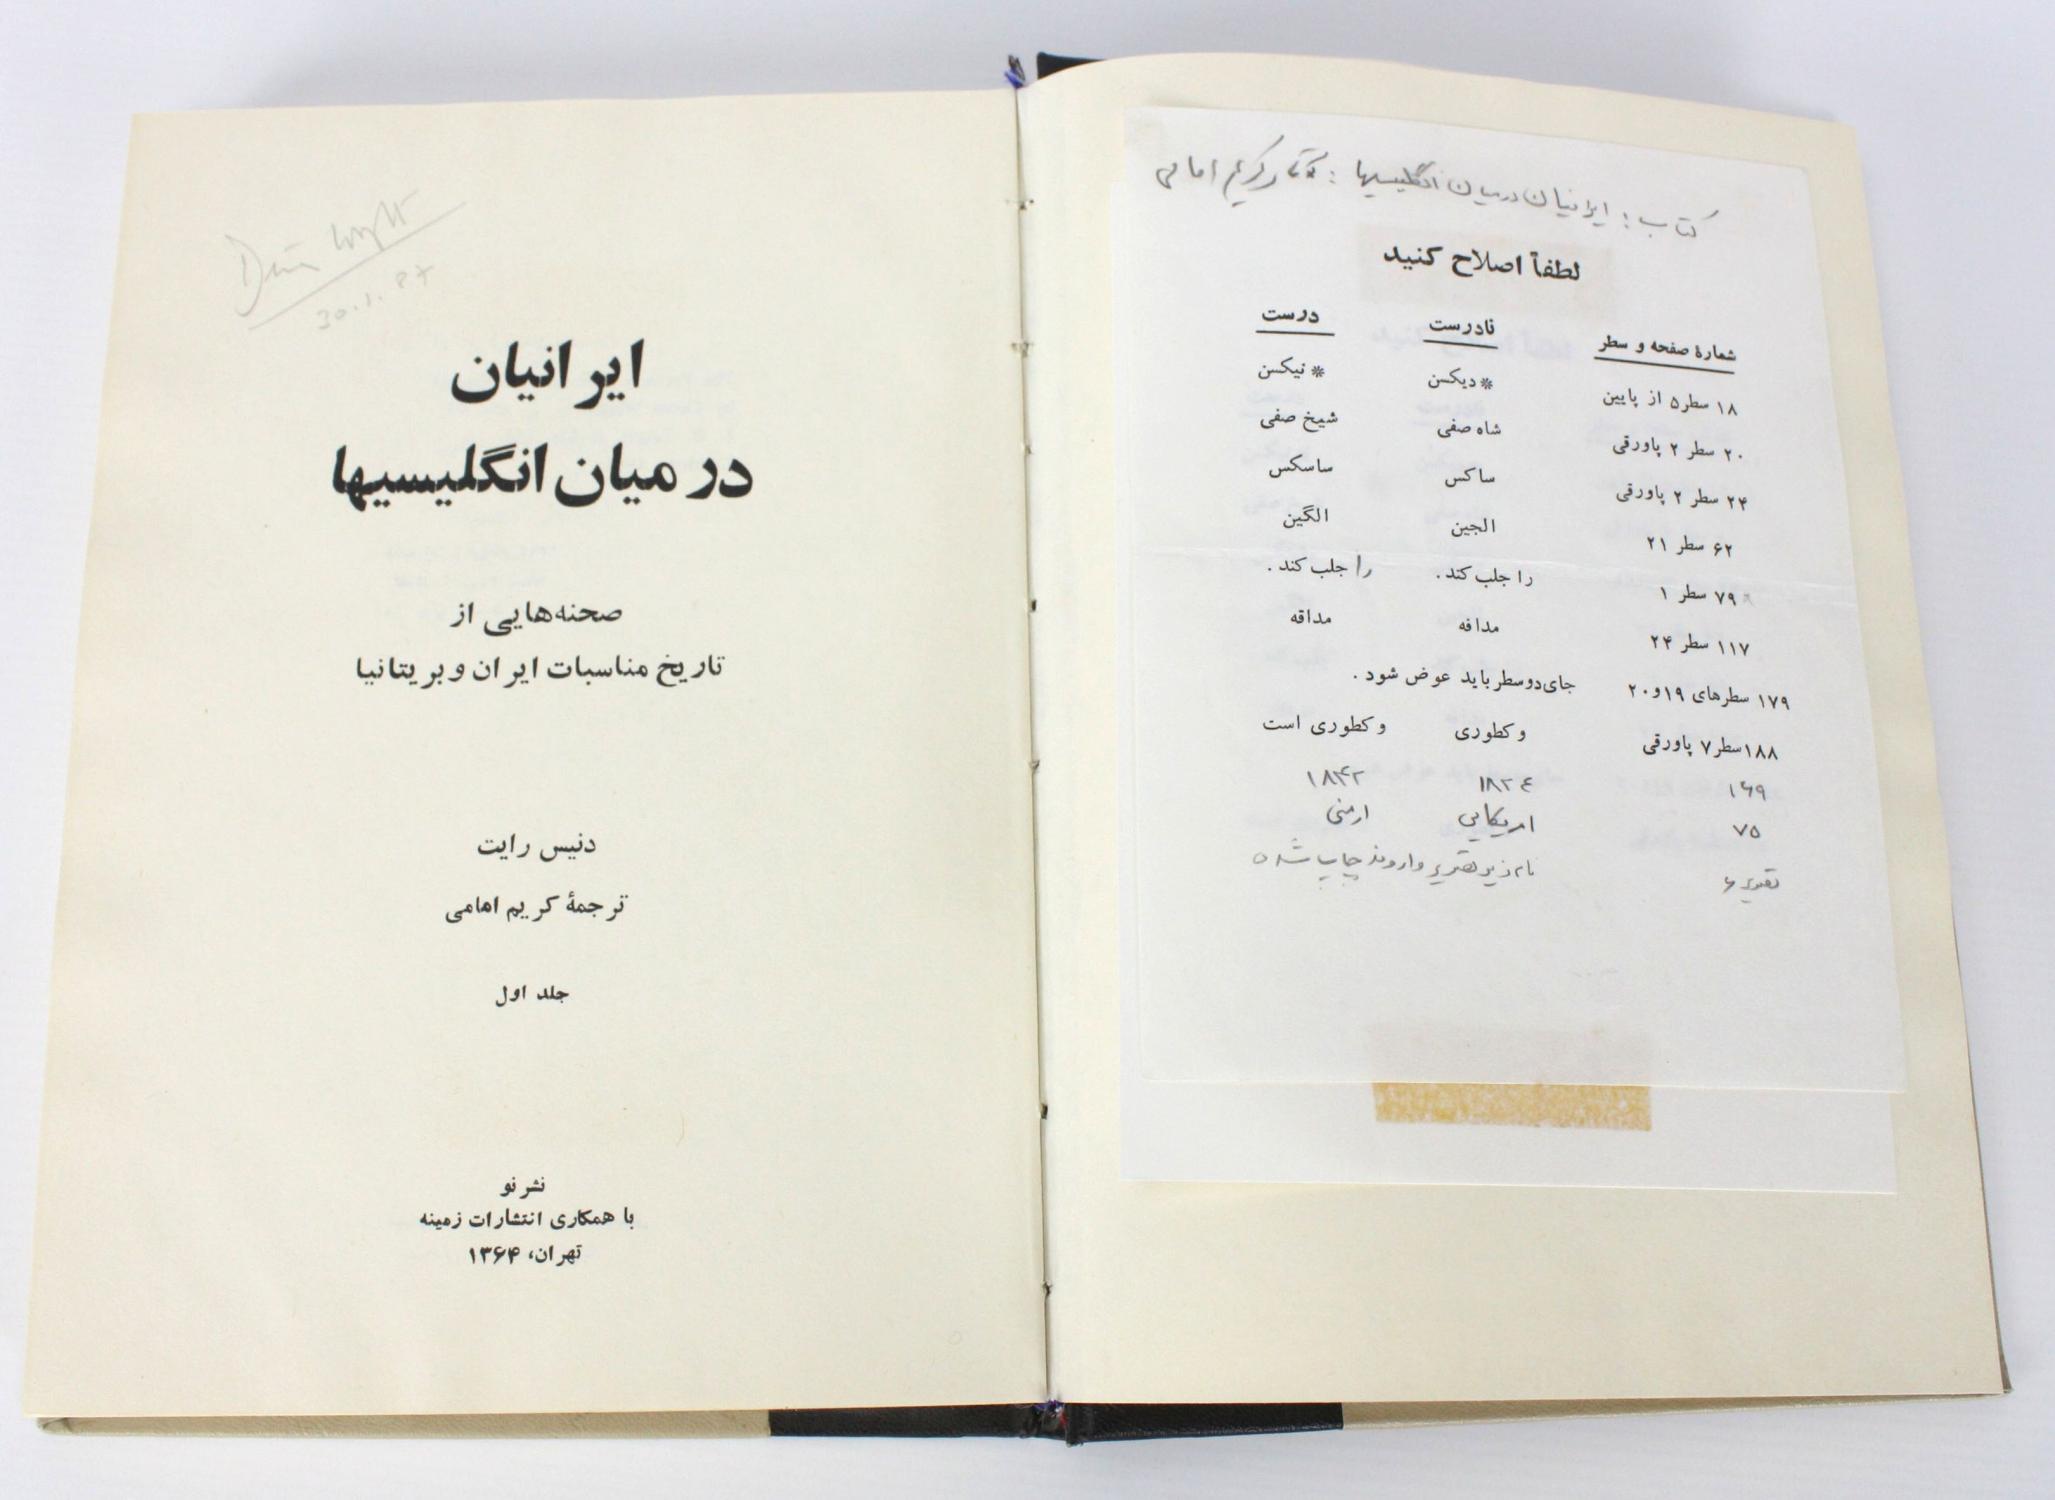 Denis Wright
30.1.87
ایرانیان
در میان انگلیسیها
صحنه‌هایی از
تاریخ مناسبات ایران و بریتانیا
دنیس رایت
ترجمهٔ کریم امامی
جلد اول
نشر نو
با همکاری انتشارات زمینه
تهران، ۱۳۶۴
کتاب: ایرانیان در میان انگلیسیها: کریم امامی
لطفاً اصلاح کنید
شمارهٔ صفحه و سطر نادرست درست
۱۸ سطر ۵ از پایین *دیکسن *نیکسن
۲۰ سطر ۲ پاورقی شاه صفی شیخ صفی
۲۴ سطر ۲ پاورقی ساکس ساسکس
۶۲ سطر ۲۱ الجین الگین
۷۹ سطر ۱ را جلب کند. را جلب کند.
۱۱۷ سطر ۲۴ مدافه مداقه
۱۷۹ سطرهای ۱۹و۲۰ جای دو سطر باید عوض شود.
۱۸۸ سطر ۷ پاورقی و کطوری و کطوری است
۱۶۹ ۱۸۲۴ ۱۸۴۲
۷۵ امریکایی ارمنی
تصویر ۶ نام زیر تصویر وارونه چاپ شده